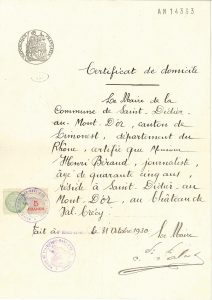 AN 14333
Certificat de domicile
Le Maire de la
Commune de Saint-Didier-
au-Mont-D'Or, canton de
Limonest, département du
Rhône, certifie que Monsieur
Henri Béraud, journaliste,
âgé de quarante cinq ans,
réside à Saint-Didier-au-
Mont-D'Or, au Château de
Val-Crécy.
Fait à
le 31 Octobre 1930
Le Maire